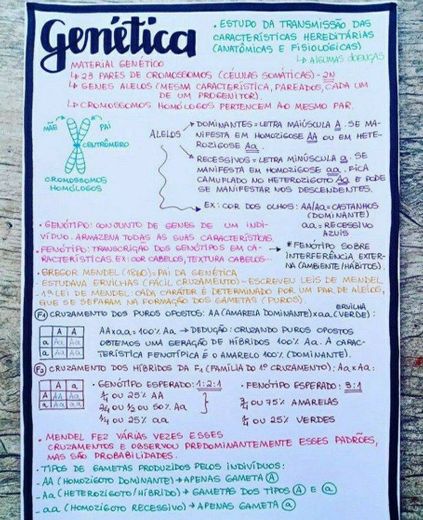 Genética
• ESTUDO DA TRANSMISSÃO DAS
CARACTERÍSTICAS HEREDITÁRIAS
(ANATÔMICAS E FISIOLÓGICAS)
↳ ALGUMAS DOENÇAS
MATERIAL GENÉTICO
↳ 23 PARES DE CROMOSSOMOS (CÉLULAS SOMÁTICAS) - 2N
↳ GENES ALELOS (MESMA CARACTERÍSTICA, PAREADOS, CADA UM
DE UM PROGENITOR).
↳ CROMOSSOMOS HOMÓLOGOS PERTENCEM AO MESMO PAR.
MÃE PAI
CENTRÔMERO
CROMOSSOMOS
HOMÓLOGOS
ALELOS
DOMINANTES = LETRA MAIÚSCULA A. SE MA-
NIFESTA EM HOMOZIGOSE AA OU EM HETE-
ROZIGOSE Aa.
RECESSIVOS = LETRA MINÚSCULA a. SE MA-
NIFESTA EM HOMOZIGOSE aa. FICA
CAMUFLADO NO HETEROZIGOTO Aa E PODE
SE MANIFESTAR NOS DESCENDENTES.
EX: COR DOS OLHOS: AA/Aa = CASTANHOS
(DOMINANTE)
aa = RECESSIVO
AZUIS
• GENÓTIPO: CONJUNTO DE GENES DE UM INDI-
VÍDUO. ARMAZENA TODAS AS SUAS CARACTERÍSTICAS.
• FENÓTIPO: TRANSCRIÇÃO DOS GENÓTIPOS EM CA-
RACTERÍSTICAS. EX: COR CABELOS, TEXTURA CABELOS...
* FENÓTIPO SOBRE
INTERFERÊNCIA EXTER-
NA (AMBIENTE/HÁBITOS).
• GREGOR MENDEL = PAI DA GENÉTICA
ESTUDAVA ERVILHAS (FÁCIL CRUZAMENTO) → ESCREVEU LEIS DE MENDEL
• 1ª LEI DE MENDEL: CADA CARÁTER É DETERMINADO POR UM PAR DE ALELOS,
QUE SE SEPARAM NA FORMAÇÃO DOS GAMETAS (PUROS).
F1 CRUZAMENTO DOS PUROS OPOSTOS: AA (AMARELA DOMINANTE) x aa (VERDE):
ERVILHA
A A
a Aa Aa
a Aa Aa
AA x aa = 100% Aa → DEDUÇÃO: CRUZANDO PUROS OPOSTOS
OBTEMOS UMA GERAÇÃO DE HÍBRIDOS 100% Aa. A CARAC-
TERÍSTICA FENOTÍPICA É O AMARELO 100% (DOMINANTE).
F2 CRUZAMENTO DOS HÍBRIDOS DA F1 (FAMÍLIA DO 1º CRUZAMENTO): Aa x Aa:
A a
A AA Aa
a Aa aa
• GENÓTIPO ESPERADO: 1:2:1
1/4 OU 25% AA
2/4 OU 1/2 OU 50% Aa
1/4 OU 25% aa
• FENÓTIPO ESPERADO: 3:1
3/4 OU 75% AMARELAS
1/4 OU 25% VERDES
• MENDEL FEZ VÁRIAS VEZES ESSES
CRUZAMENTOS E OBSERVOU PREDOMINANTEMENTE ESSES PADRÕES,
MAS SÃO PROBABILIDADES.
• TIPOS DE GAMETAS PRODUZIDOS PELOS INDIVÍDUOS:
- AA (HOMOZIGOTO DOMINANTE) → APENAS GAMETA A
- Aa (HETEROZIGOTO/HÍBRIDO) → GAMETAS DOS TIPOS A E a
- aa (HOMOZIGOTO RECESSIVO) → APENAS GAMETA a